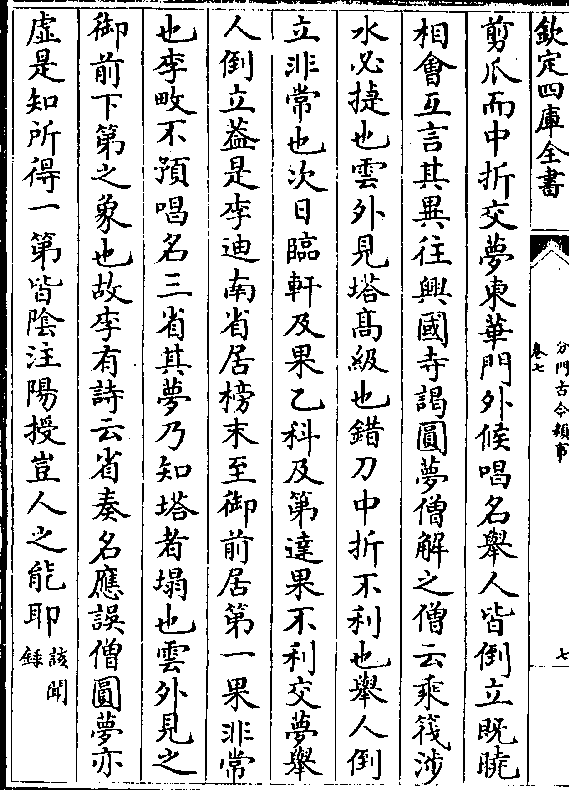 欽定四庫全書
分門古今類事
卷七
七
剪爪而中折交夢東華門外候唱名舉人皆倒立既曉
相會互言其異往興國寺謁圓夢僧解之僧云乘筏渉
水必捷也雲外見塔髙級也錯刀中折不利也舉人倒
立非常也次日臨軒及果乙科及第達果不利交夢舉
人倒立葢是李迪南省居榜末至御前居第一果非常
也李畋不預唱名三省其夢乃知塔者塌也雲外見之
御前下第之象也故李有詩云省奏名應誤僧圓夢亦
虚是知所得一第皆隂注陽授豈人之能耶
該聞
録